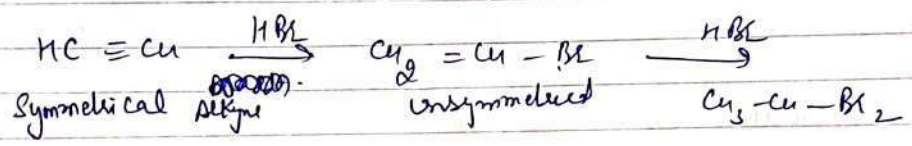 HC ≡ CH HBr → CH2 = CH - Br HBr →
Symmetrical Alkyne Unsymmetrical CH3 - CH - Br2